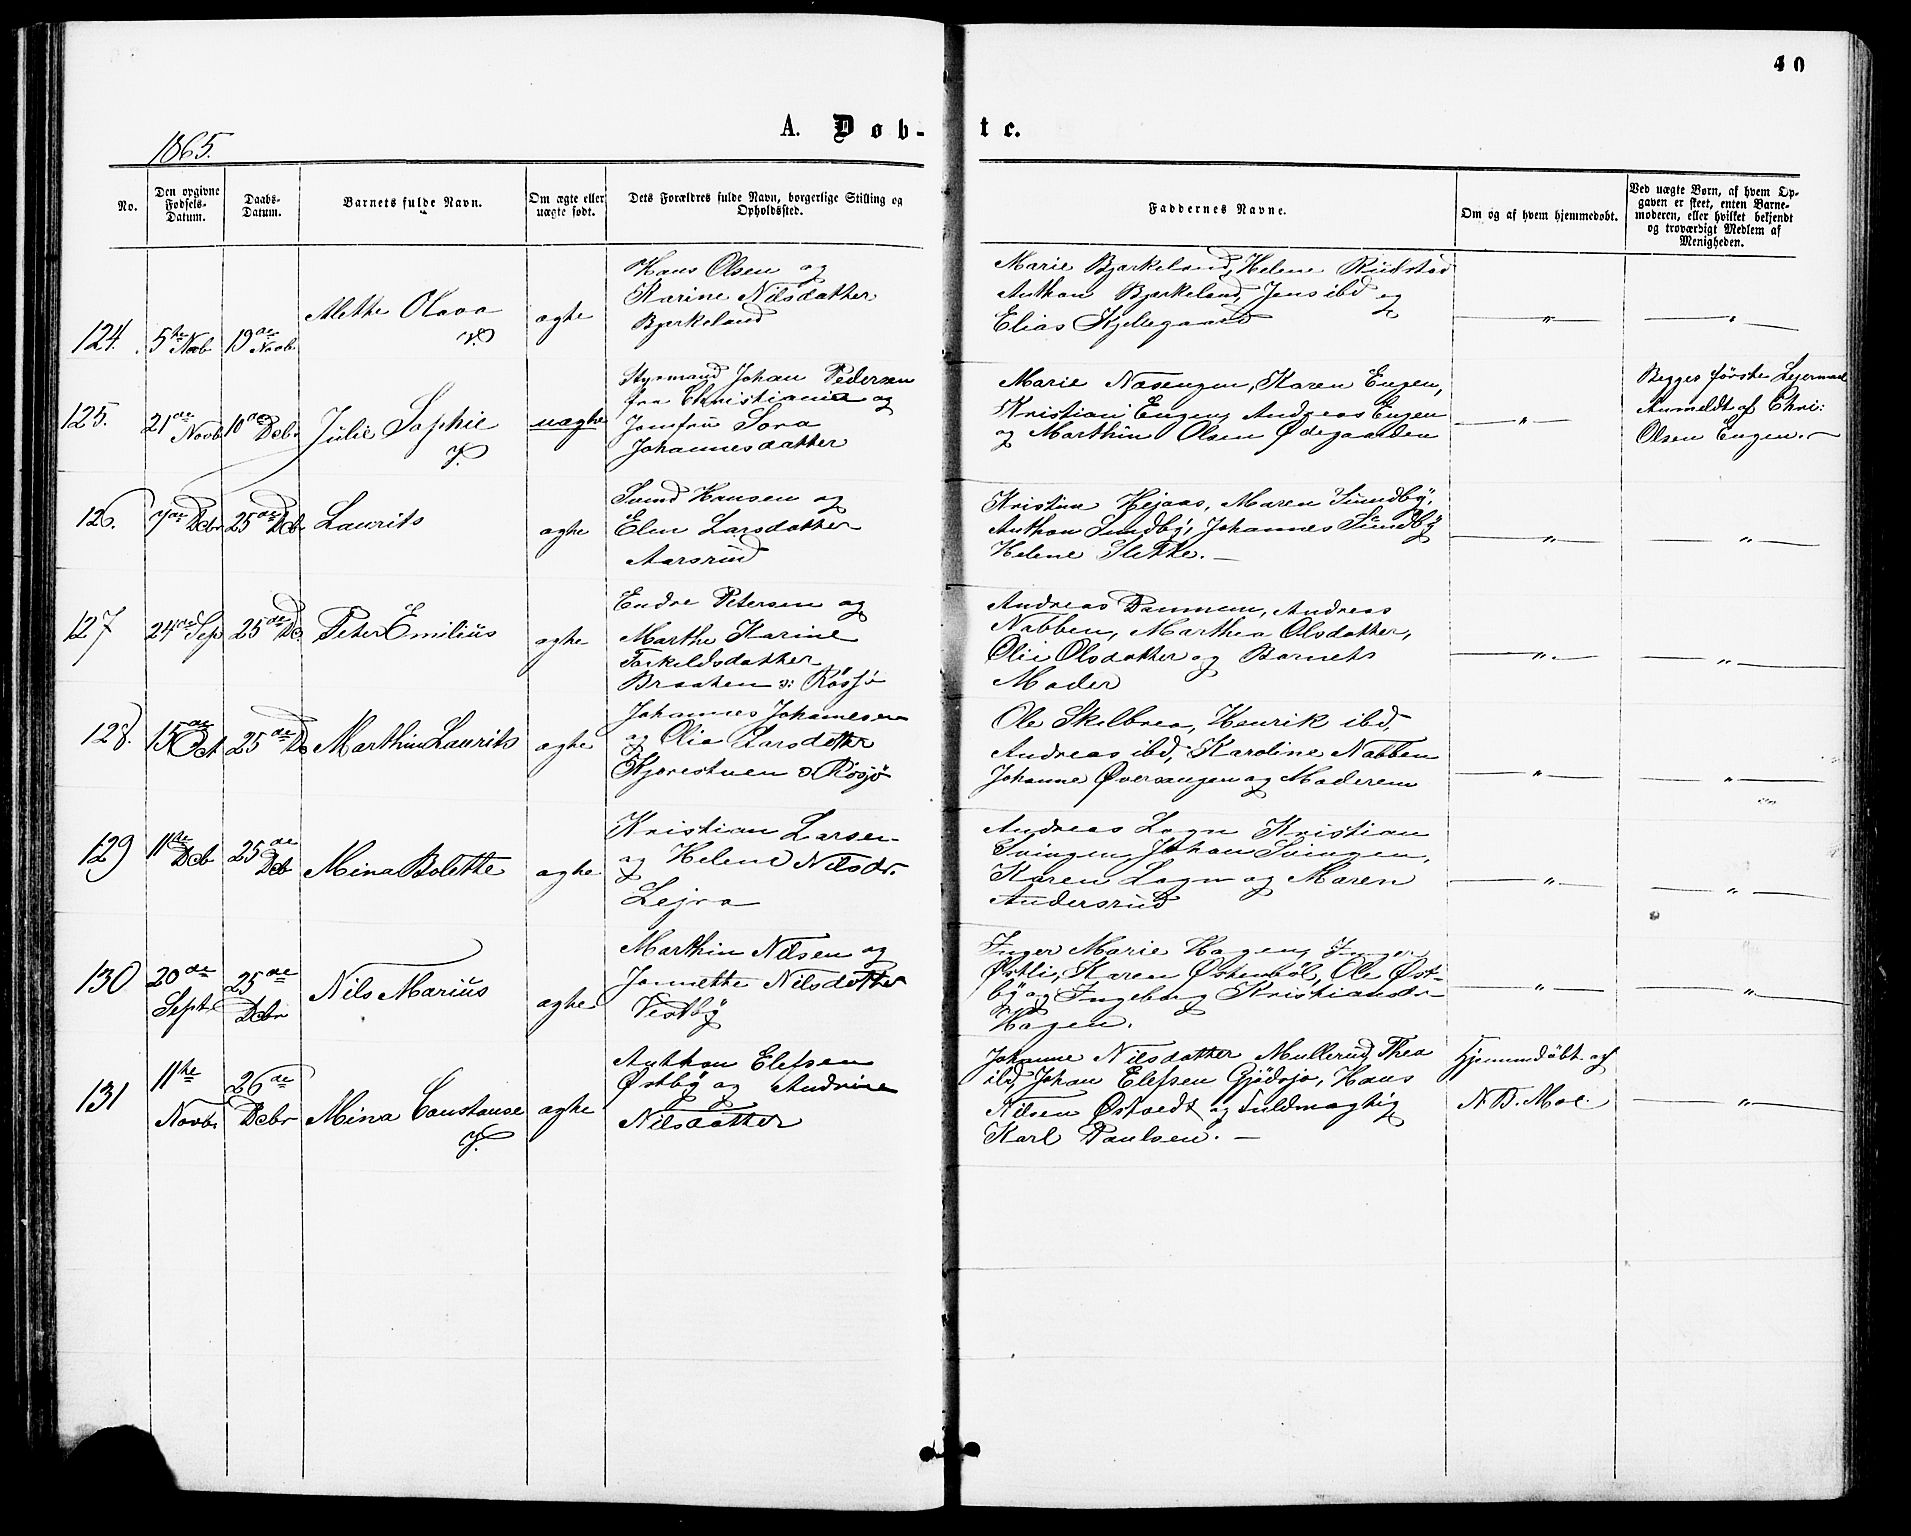 40
A. Døb-te.
1865.
No.
Den opgivne Fødsels-Datum.
Daabs-Datum.
Barnets fulde Navn.
Om ægte eller uægte født.
Dets Forældres fulde Navn, borgerlige Stilling og Opholdssted.
Faddernes Navne.
Om og af hvem hjemmedøbt.
Ved uægte Børn, af hvem Opgaven er skeet, enten Barnemoderen, eller hvilket bekjendt og troværdigt Medlem af Menigheden.
124. 5te Novb 19de Novb.
Methe Olava
v.
ægte
Hans Olsen og
Karine Nilsdatter
Bjerkeland
Marie Bjerkeland, Helene Rudstad
Anthon Bjerkeland, Jens ibd og
Elias Kjellegaard
— " —
— " —
125. 21de Novb 10de Debr
Julie Sophie
v.
uægte
Styrmand Johan Pedersen
fra Christiania og
Jomfru Lova
Johannesdatter
Marie Næsengen, Karen Engen,
Kristian Engen, Andreas Engen
og Marthin Olsen Ødegaarden
— " —
Begges første Lejermaal
Anmeldt af Chri:
Olsen Engen. —
126. 7de Debr 25de Debr
Laurits
ægte
Hansen og
Elen Larsdatter
Aarsrud
Kristine Hejaas, Maren Sundby,
Anthon Sundby, Johannes Sundby
Helene Slette. —
— " —
— " —
127 24de Sep 25de De.
Peter Emilius
ægte
Endre Petersen og
Marthe Karine
Torkeldsdatter
Braaten v: Røssjø
Andreas Dammen, Andreas
Nabben, Marthea Olsdatter,
Olie Olsdatter og Barnets
Moder
— " —
— " —
128. 15de Oct 25de De
Marthin Laurits
ægte
Johannes Johannesen
og Olia Larsdatter
Kjærestuen v Røsjø
Ole Skelbrea, Henrik ibd,
Andreas ibd, Karoline Nabben
Johanne Øverengen og Moderen
— " —
— " —
129 11te Deb 25de Deb
Mina Bolette
ægte
Kristian Larsen
og Helene Nilsdr.
Lejra
Andreas Logn Kristian
Svingen, Johan Svingen,
Karen Logn og Maren
Andersrud
— " —
— " —
130 20de Sept. 25de Debr
Nils Marius
ægte
Marthin Nilsen og
Jannette Nilsdatter
Vestby
Inger Marie Hagen, Inger
Østli, Karen Østenbøl, Ole Øst-
by og Ingeborg Kristiansdr
Hagen.
— " —
— " —
131 11te Novb. 26de Debr
Mina Constanse
v.
ægte
Anthon Elefsen
Østby og Andrine
Nilsdatter
Johanne Nilsdatter Mullerud, Thea
ibd, Johan Elefsen Gjødsjø, Hans
Nilsen Østvedt og Fuldmægtig
Karl Paulsen. —
Hjemmedøbt af
N. D. Moe.
— " —